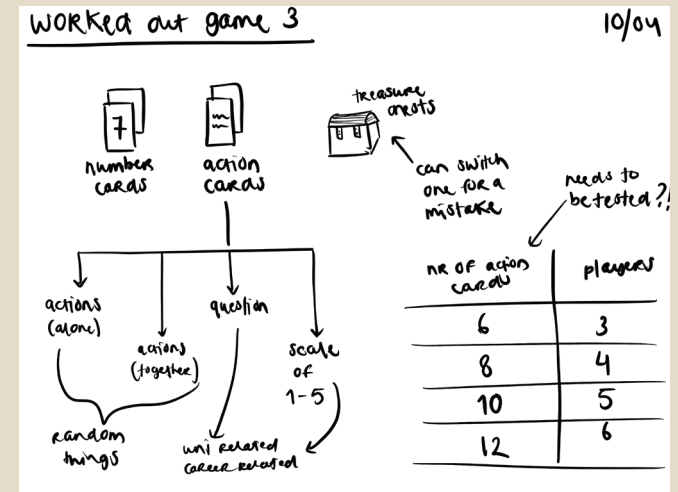 Worked out game 3
10/04
7
numbers
cards
action
cards
treasure
chests
can switch
one for a
mistake
needs to
be tested?!
actions
(alone)
actions
(together)
question
scale
of
1-5
random
things
uni related
career related
nr of action
cards
players
6 3
8 4
10 5
12 6